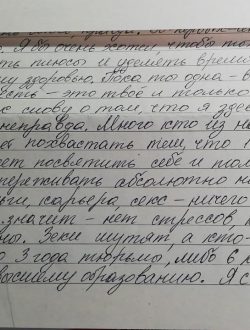 Я бы очень хотел, чтобы ты
ть плюсы и уделить время
му здоровью. Пока ты одна - в
есть - это твоё и только
с слову о том, что я здес
неправда. Много кто из не
ет похвастать тем, что
ет посвятить себе и тол
переживать абсолютно на
ьги, карьера, секс - ничего
значит - нет стрессов,
ны. Зеки шутят, а кто-
о 3 года тюрьмы, либо 6 к
высшему образованию. Я с